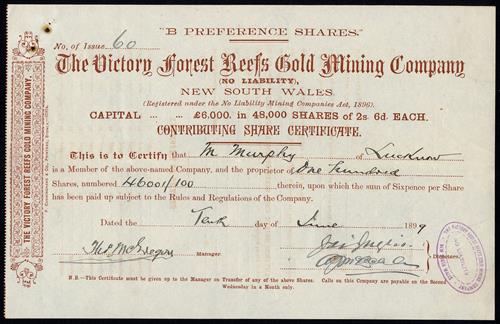 "B PREFERENCE SHARES."
No. of Issue 60
The Victory Forest Reefs Gold Mining Company
(NO LIABILITY),
NEW SOUTH WALES.
(Registered under the No Liability Mining Companies Act, 1896).
CAPITAL ... ... £6,000. in 48,000 SHARES of 2s. 6d. EACH.
CONTRIBUTING SHARE CERTIFICATE.
This is to Certify that M. Murphy of Lucknow
is a Member of the above-named Company, and the proprietor of One hundred
Shares, numbered 46001/100 therein, upon which the sum of Sixpence per Share
has been paid up subject to the Rules and Regulations of the Company.
Dated the day of June 1899
Manager.
Directors.
N.B.—This Certificate must be given up to the Manager on Transfer of any of the above Shares. Calls on this Company are payable on the Second
Wednesday in a Month only.
THE VICTORY FOREST REEFS GOLD MINING COMPANY.